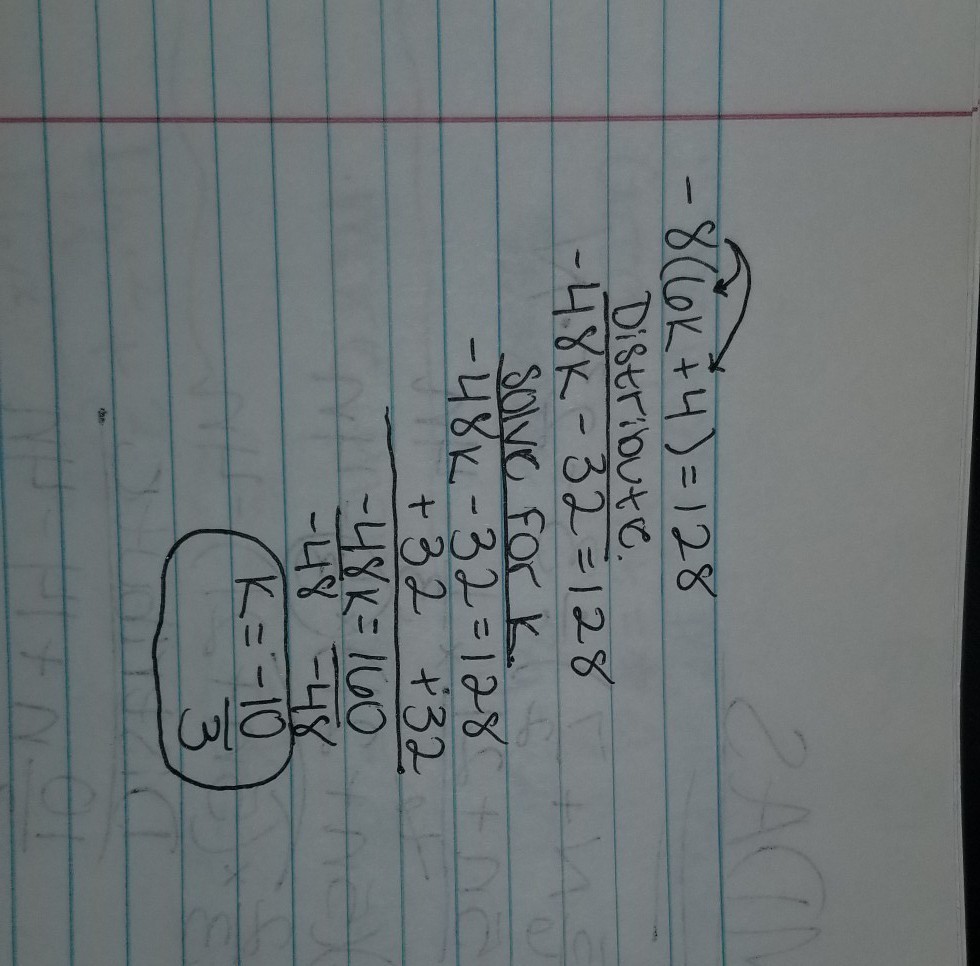 -8(6k+4)=128
Distribute.
-48k-32=128
Solve for k.
-48k-32=128
+32 +32
-48k=160
-48 -48
k=-10
3